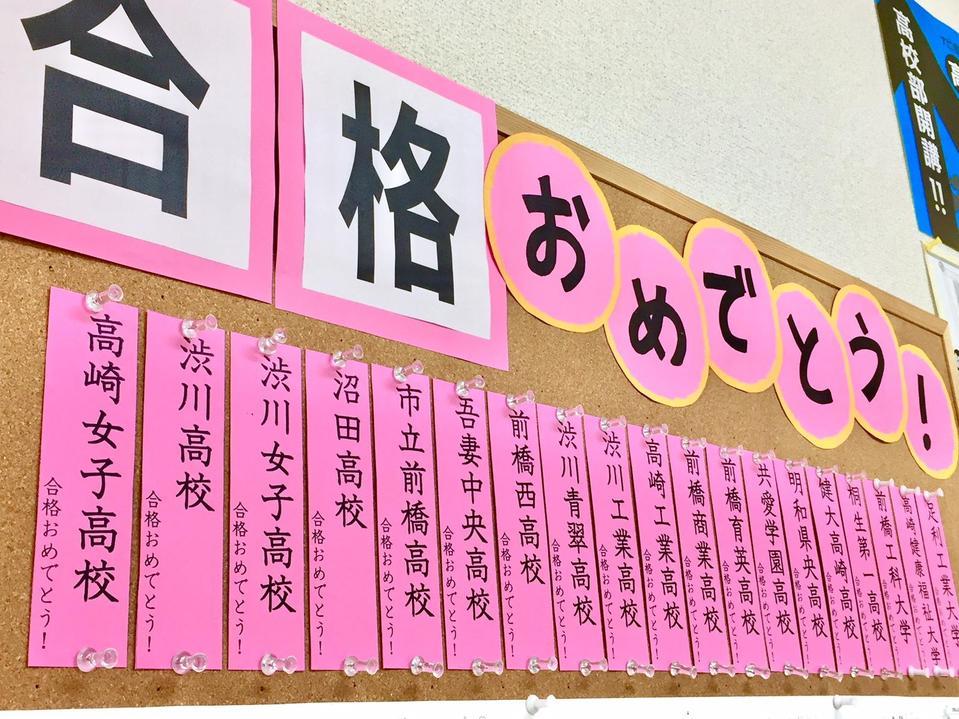 合格
おめでとう!
高崎女子高校
合格おめでとう!
渋川高校
合格おめでとう!
渋川女子高校
合格おめでとう!
沼田高校
合格おめでとう!
市立前橋高校
合格おめでとう!
吾妻中央高校
合格おめでとう!
前橋西高校
合格おめでとう!
渋川青翠高校
合格おめでとう!
渋川工業高校
合格おめでとう!
高崎工業高校
合格おめでとう!
前橋商業高校
合格おめでとう!
前橋育英高校
合格おめでとう!
共愛学園高校
合格おめでとう!
明和県央高校
合格おめでとう!
健大高崎高校
合格おめでとう!
桐生第一高校
合格おめでとう!
前橋工科大学
合格おめでとう!
高崎健康福祉大学
合格おめでとう!
足利工業大学
高校部開講!!